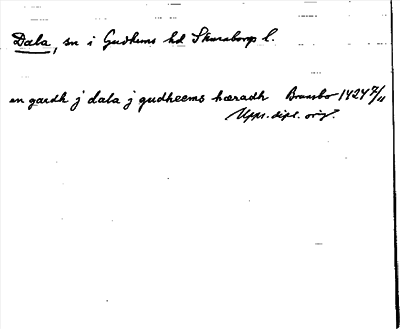 Dala, sn i Gudhems hd Skaraborgs l.
en gardh j dala j gudheems hæradh Brunsbo 1424 7/11
Upps. dipl. orig.